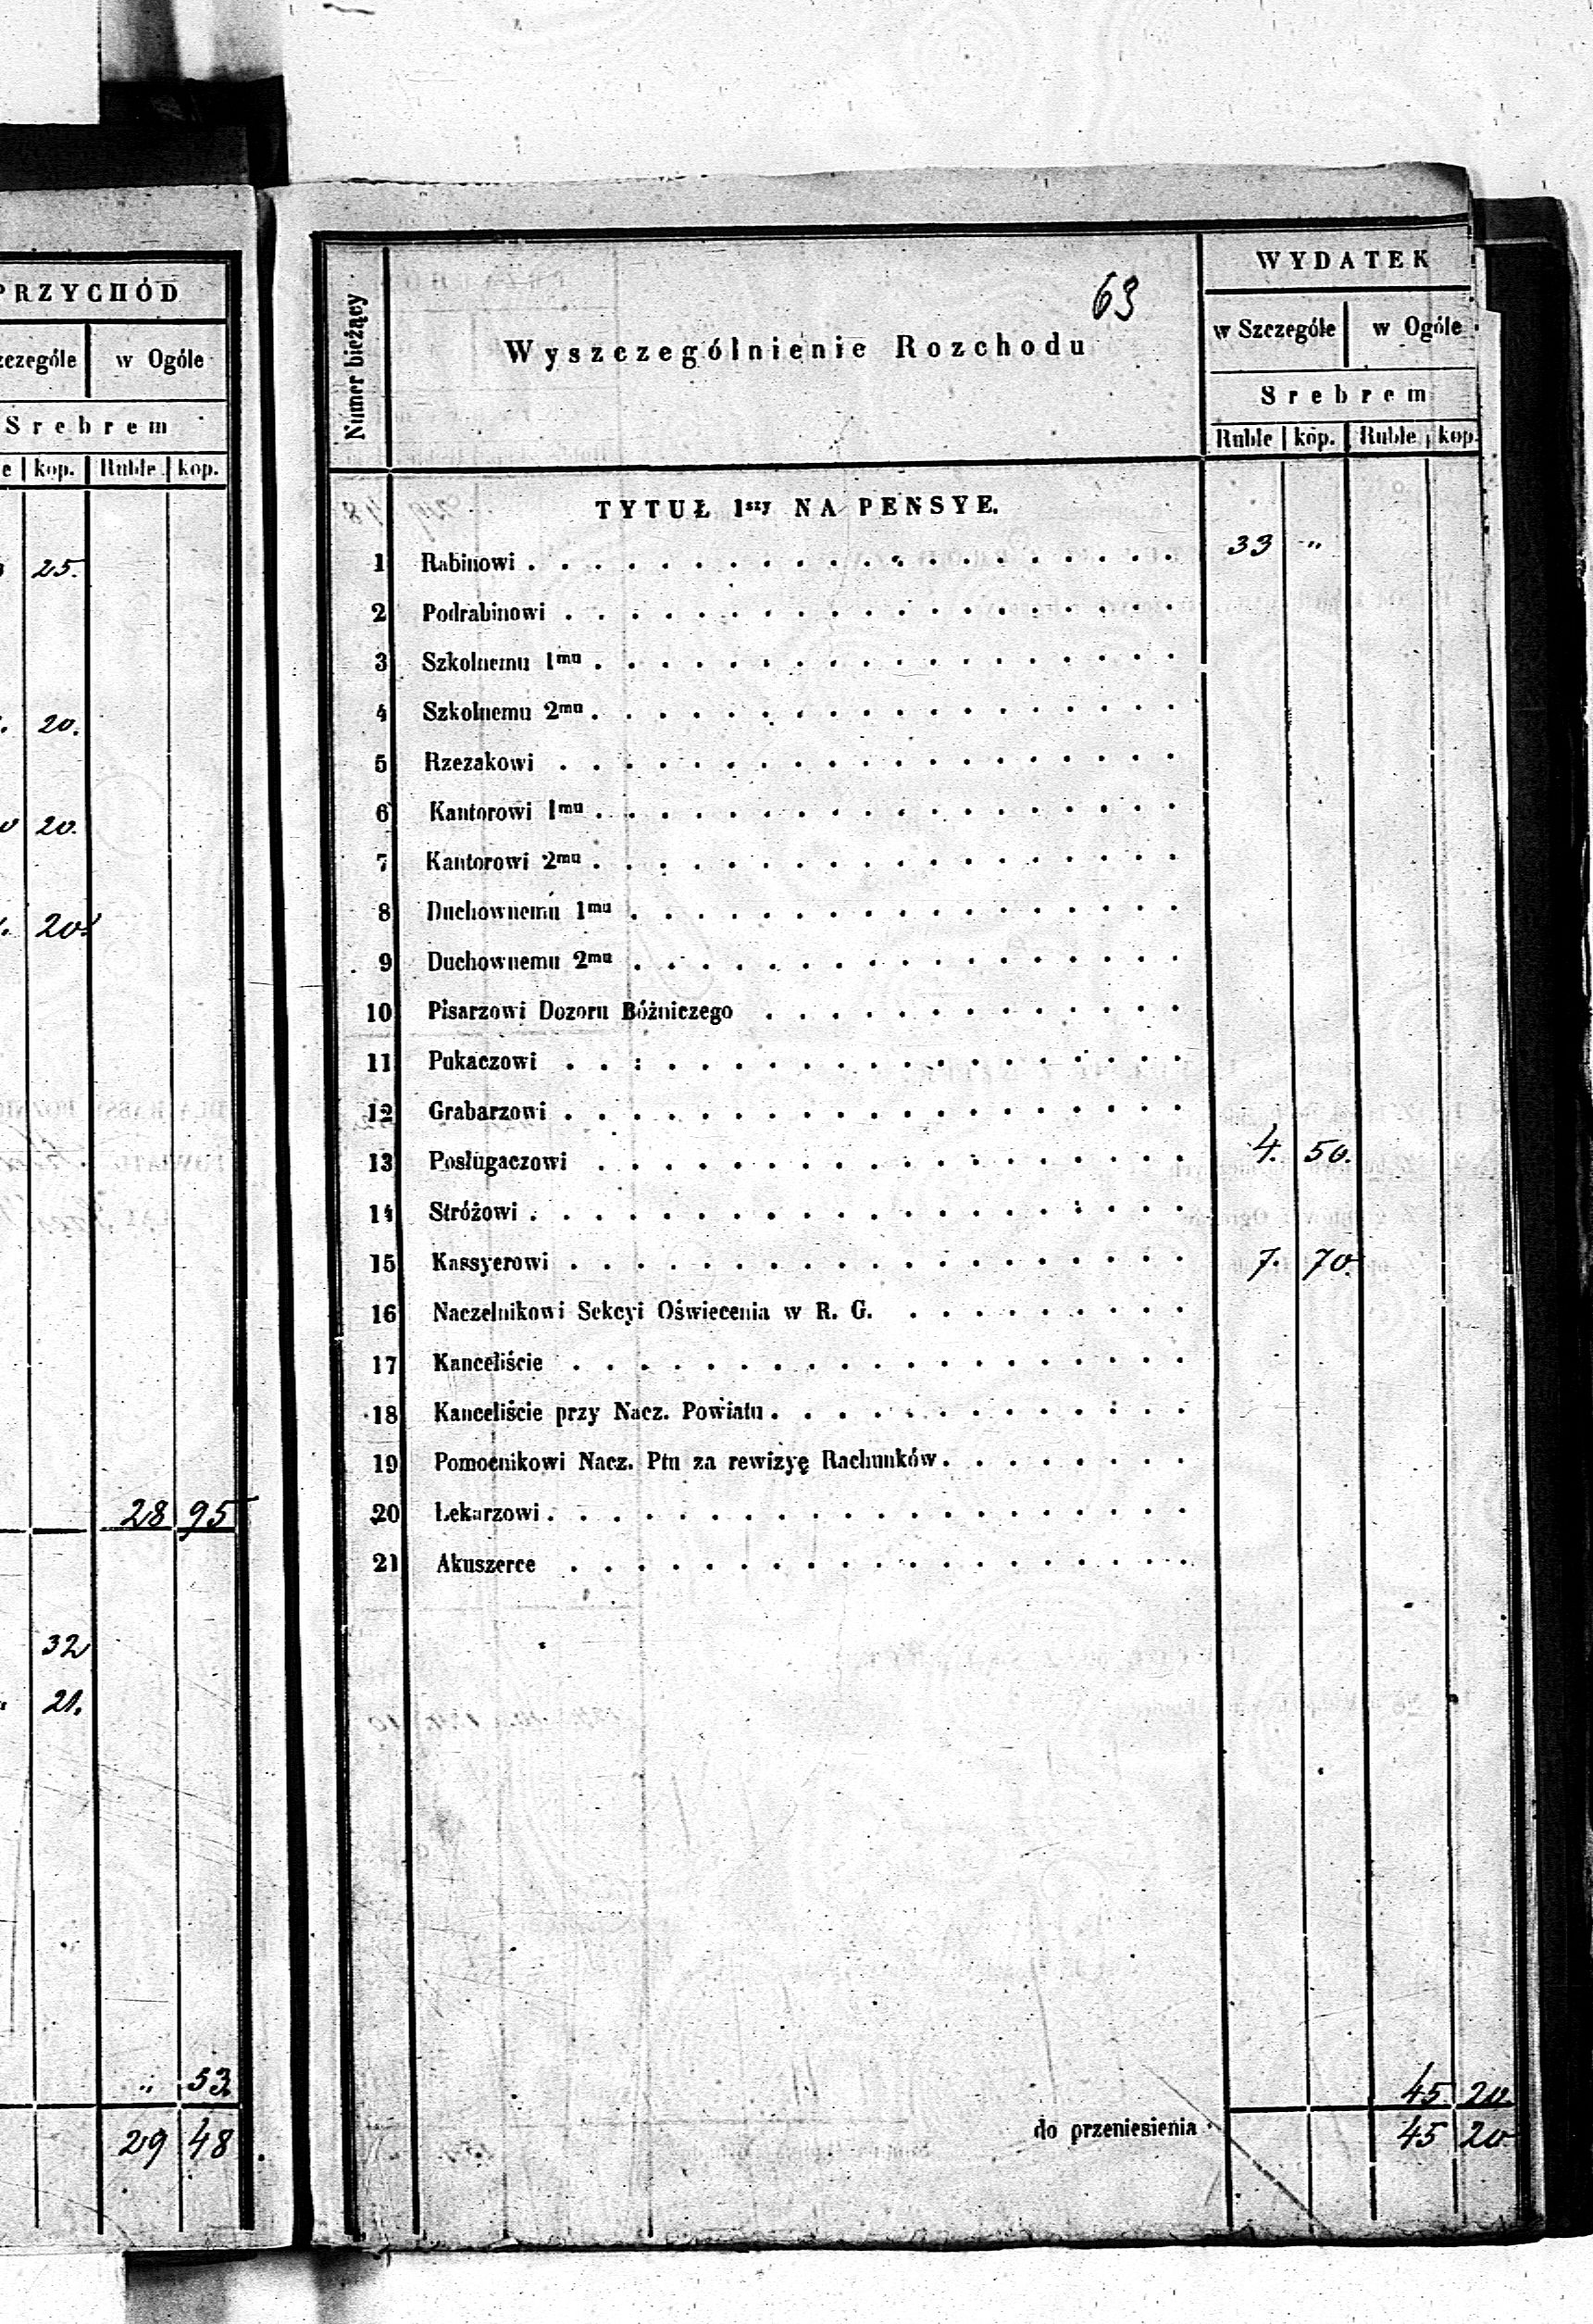 PRZYCHÓD
w Ogóle
Srebrem
kop. Ruble kop.
25.
20.
20.
20.
28 95
32
21.
„ 53.
29 48
63
WYDATEK
Numer bieżący
Wyszczególnienie Rozchodu
w Szczególe w Ogóle
Srebrem
Ruble kop. Ruble kop.
TYTUŁ 1szy NA PENSYE.
1 Rabinowi . . . . 33 „
2 Podrabinowi . . . .
3 Szkolnemu 1mu . . . .
4 Szkolnemu 2mu . . . .
5 Rzezakowi . . . .
6 Kantorowi 1mu . . . .
7 Kantorowi 2mu . . . .
8 Duchownemu 1mu . . . .
9 Duchownemu 2mu . . . .
10 Pisarzowi Dozoru Bóżniczego . . . .
11 Pukaczowi . . . .
12 Grabarzowi . . . .
13 Posługaczowi . . . . 4. 50.
14 Stróżowi . . . .
15 Kassyerowi . . . . 7. 70.
16 Naczelnikowi Sekcyi Oświecenia w R. G. . . . .
17 Kanceliście . . . .
18 Kanceliście przy Nacz. Powiatu . . . .
19 Pomocnikowi Nacz. Ptu za rewizyę Rachunków . . . .
20 Lekarzowi . . . .
21 Akuszerce . . . .
45. 20.
do przeniesienia 45 20